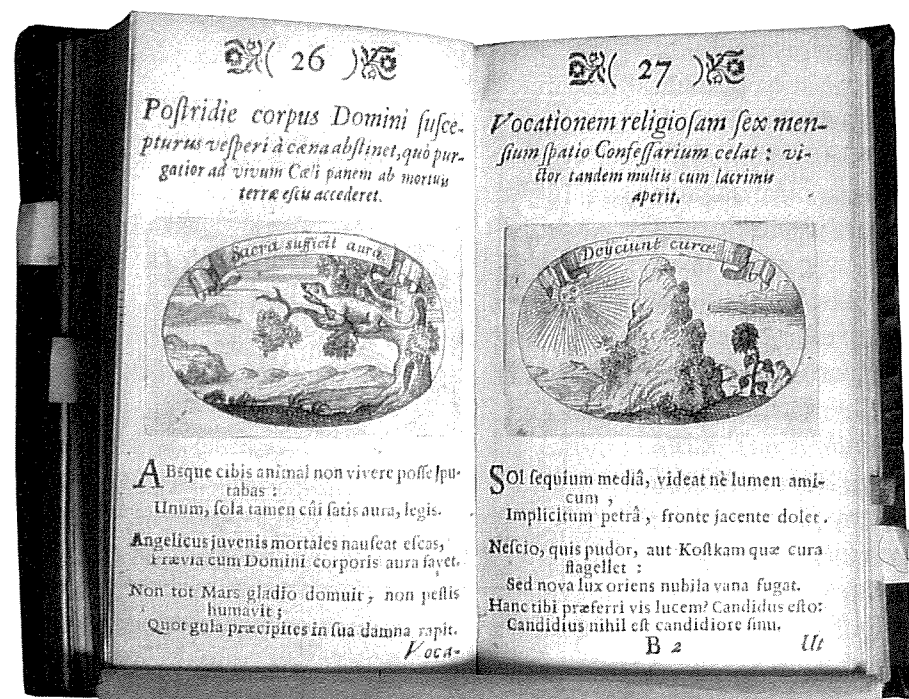 ( 26 )
Poſtridie corpus Domini ſuſce-
pturus veſperi à cæna abſtinet, quò pur-
gatior ad vivum Cæli panem ab mortuis
terræ eſcis accederet.
Sacra sufficit aura.
ABsque cibis animal non vivere poſſe /pu-
tabas :
Unum, ſola tamen cûi ſatis aura, legis.
Angelicus juvenis mortales nauſeat eſcas,
Prævia cum Domini corporis aura favet.
Non tot Mars gladio domuit, non peſtis
humavit ;
Quot gula præcipites in ſua damna rapit.
Voca-
( 27 )
Vocationem religioſam ſex men-
ſium ſpatio Confeſſarium celat : vi-
ctor tandem multis cum lacrimis
aperit.
Deijciunt curæ
SOl ſequium mediâ, videat nè lumen ami-
cum ,
Implicitum petrâ , fronte jacente dolet.
Neſcio, quis pudor, aut Koſtkam quæ cura
flagellet :
Sed nova lux oriens nubila vana fugat.
Hanc tibi præferri vis lucem? Candidus eſto:
Candidius nihil eſt candidiore ſinu.
B 2
Ut